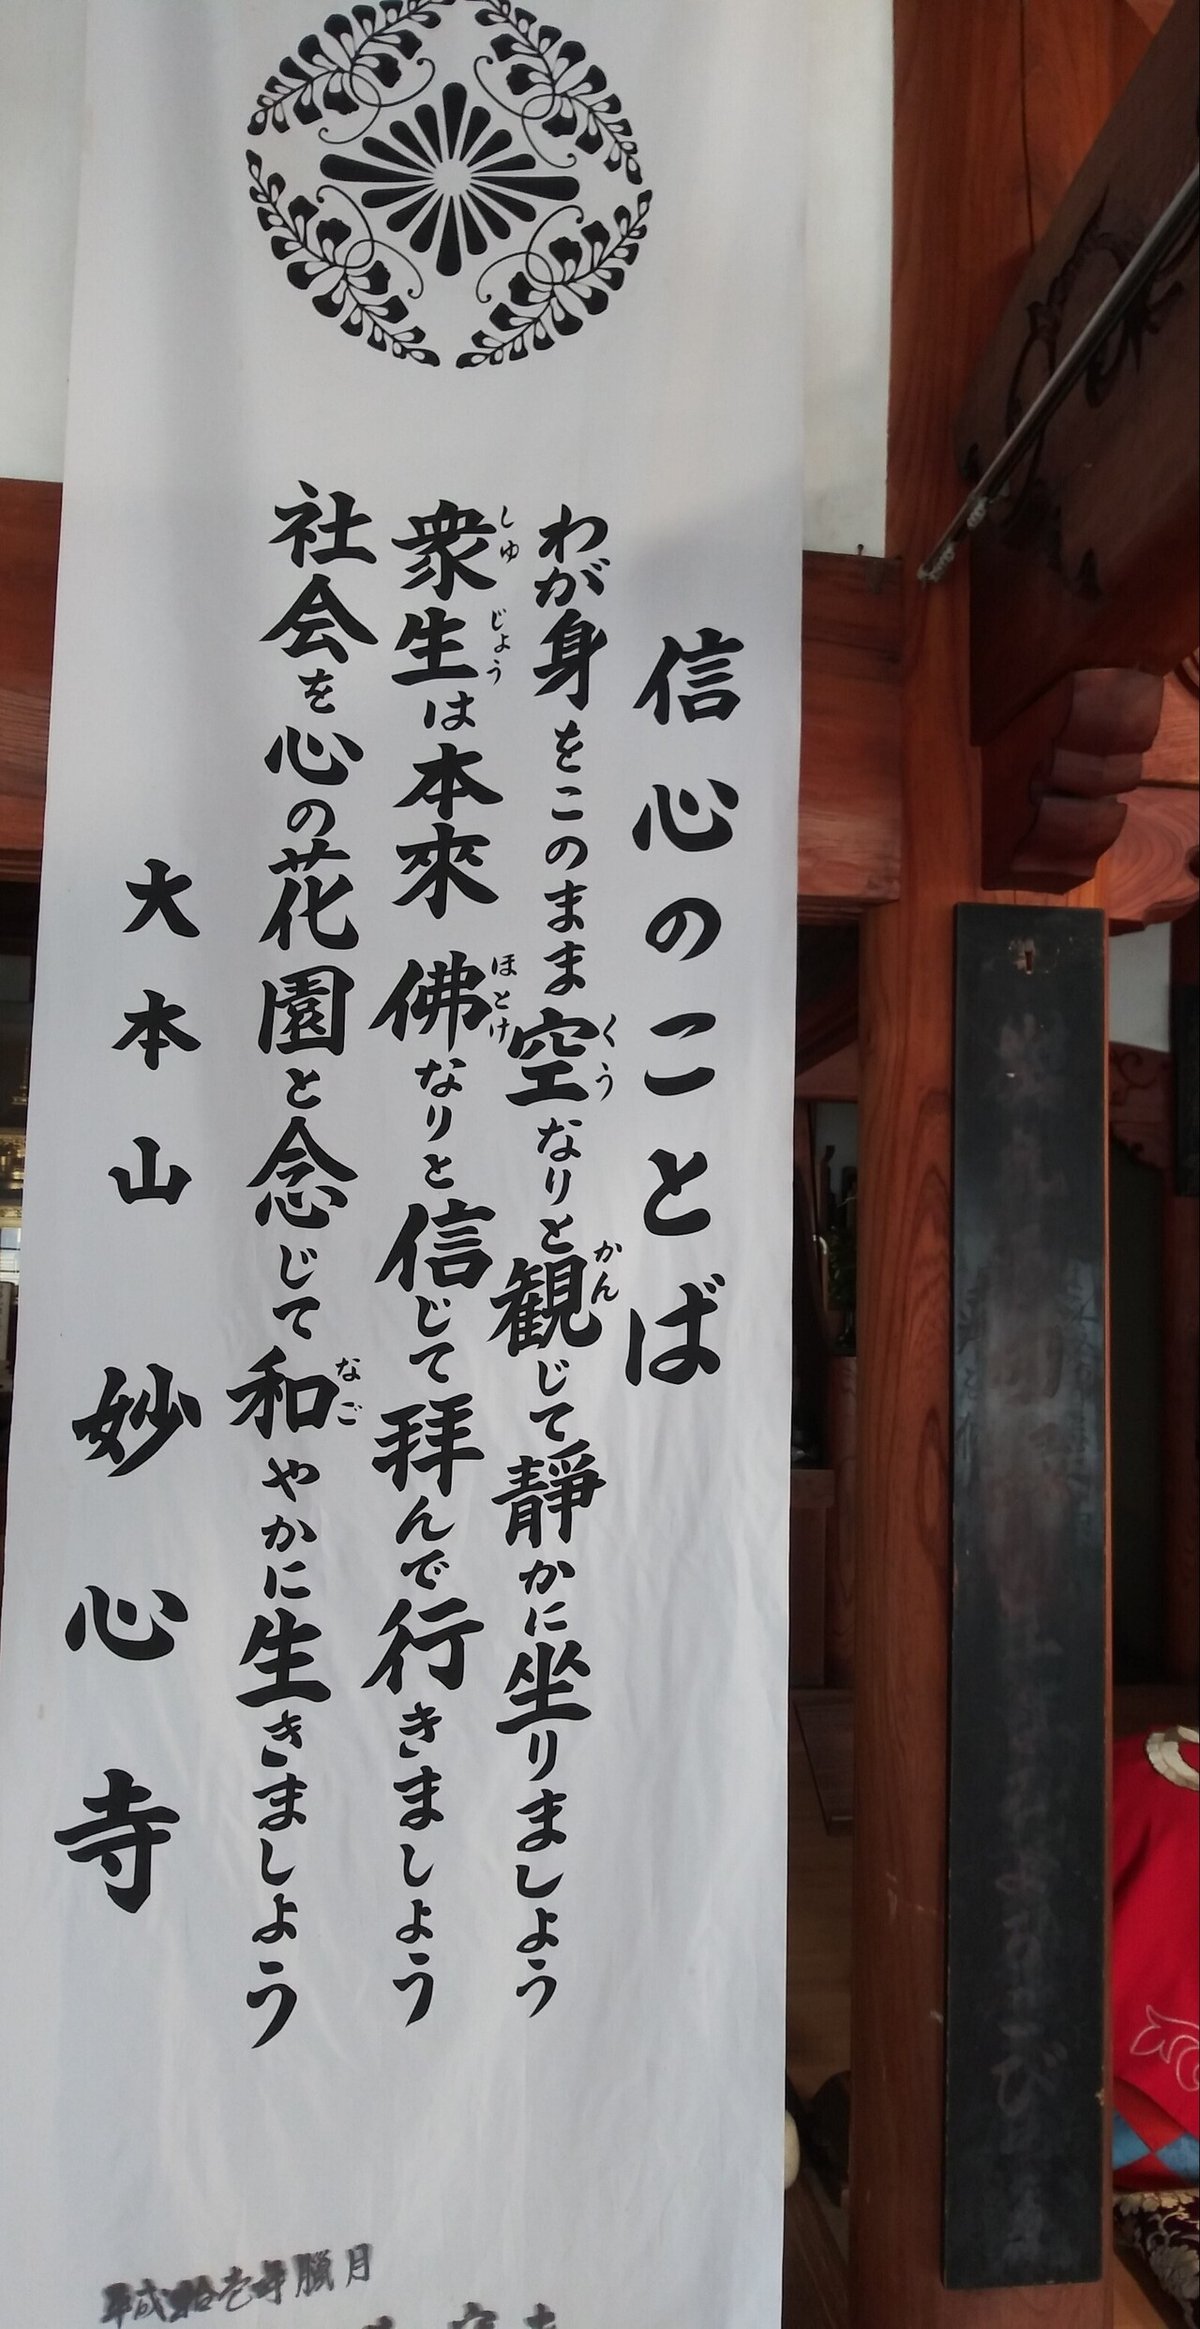 信心のことば
わが身をこのまま空なりと観じて靜かに坐りましょう
衆生は本來佛なりと信じて拝んで行きましょう
社会を心の花園と念じて和やかに生きましょう
大本山 妙心寺
平成拾壱年臘月